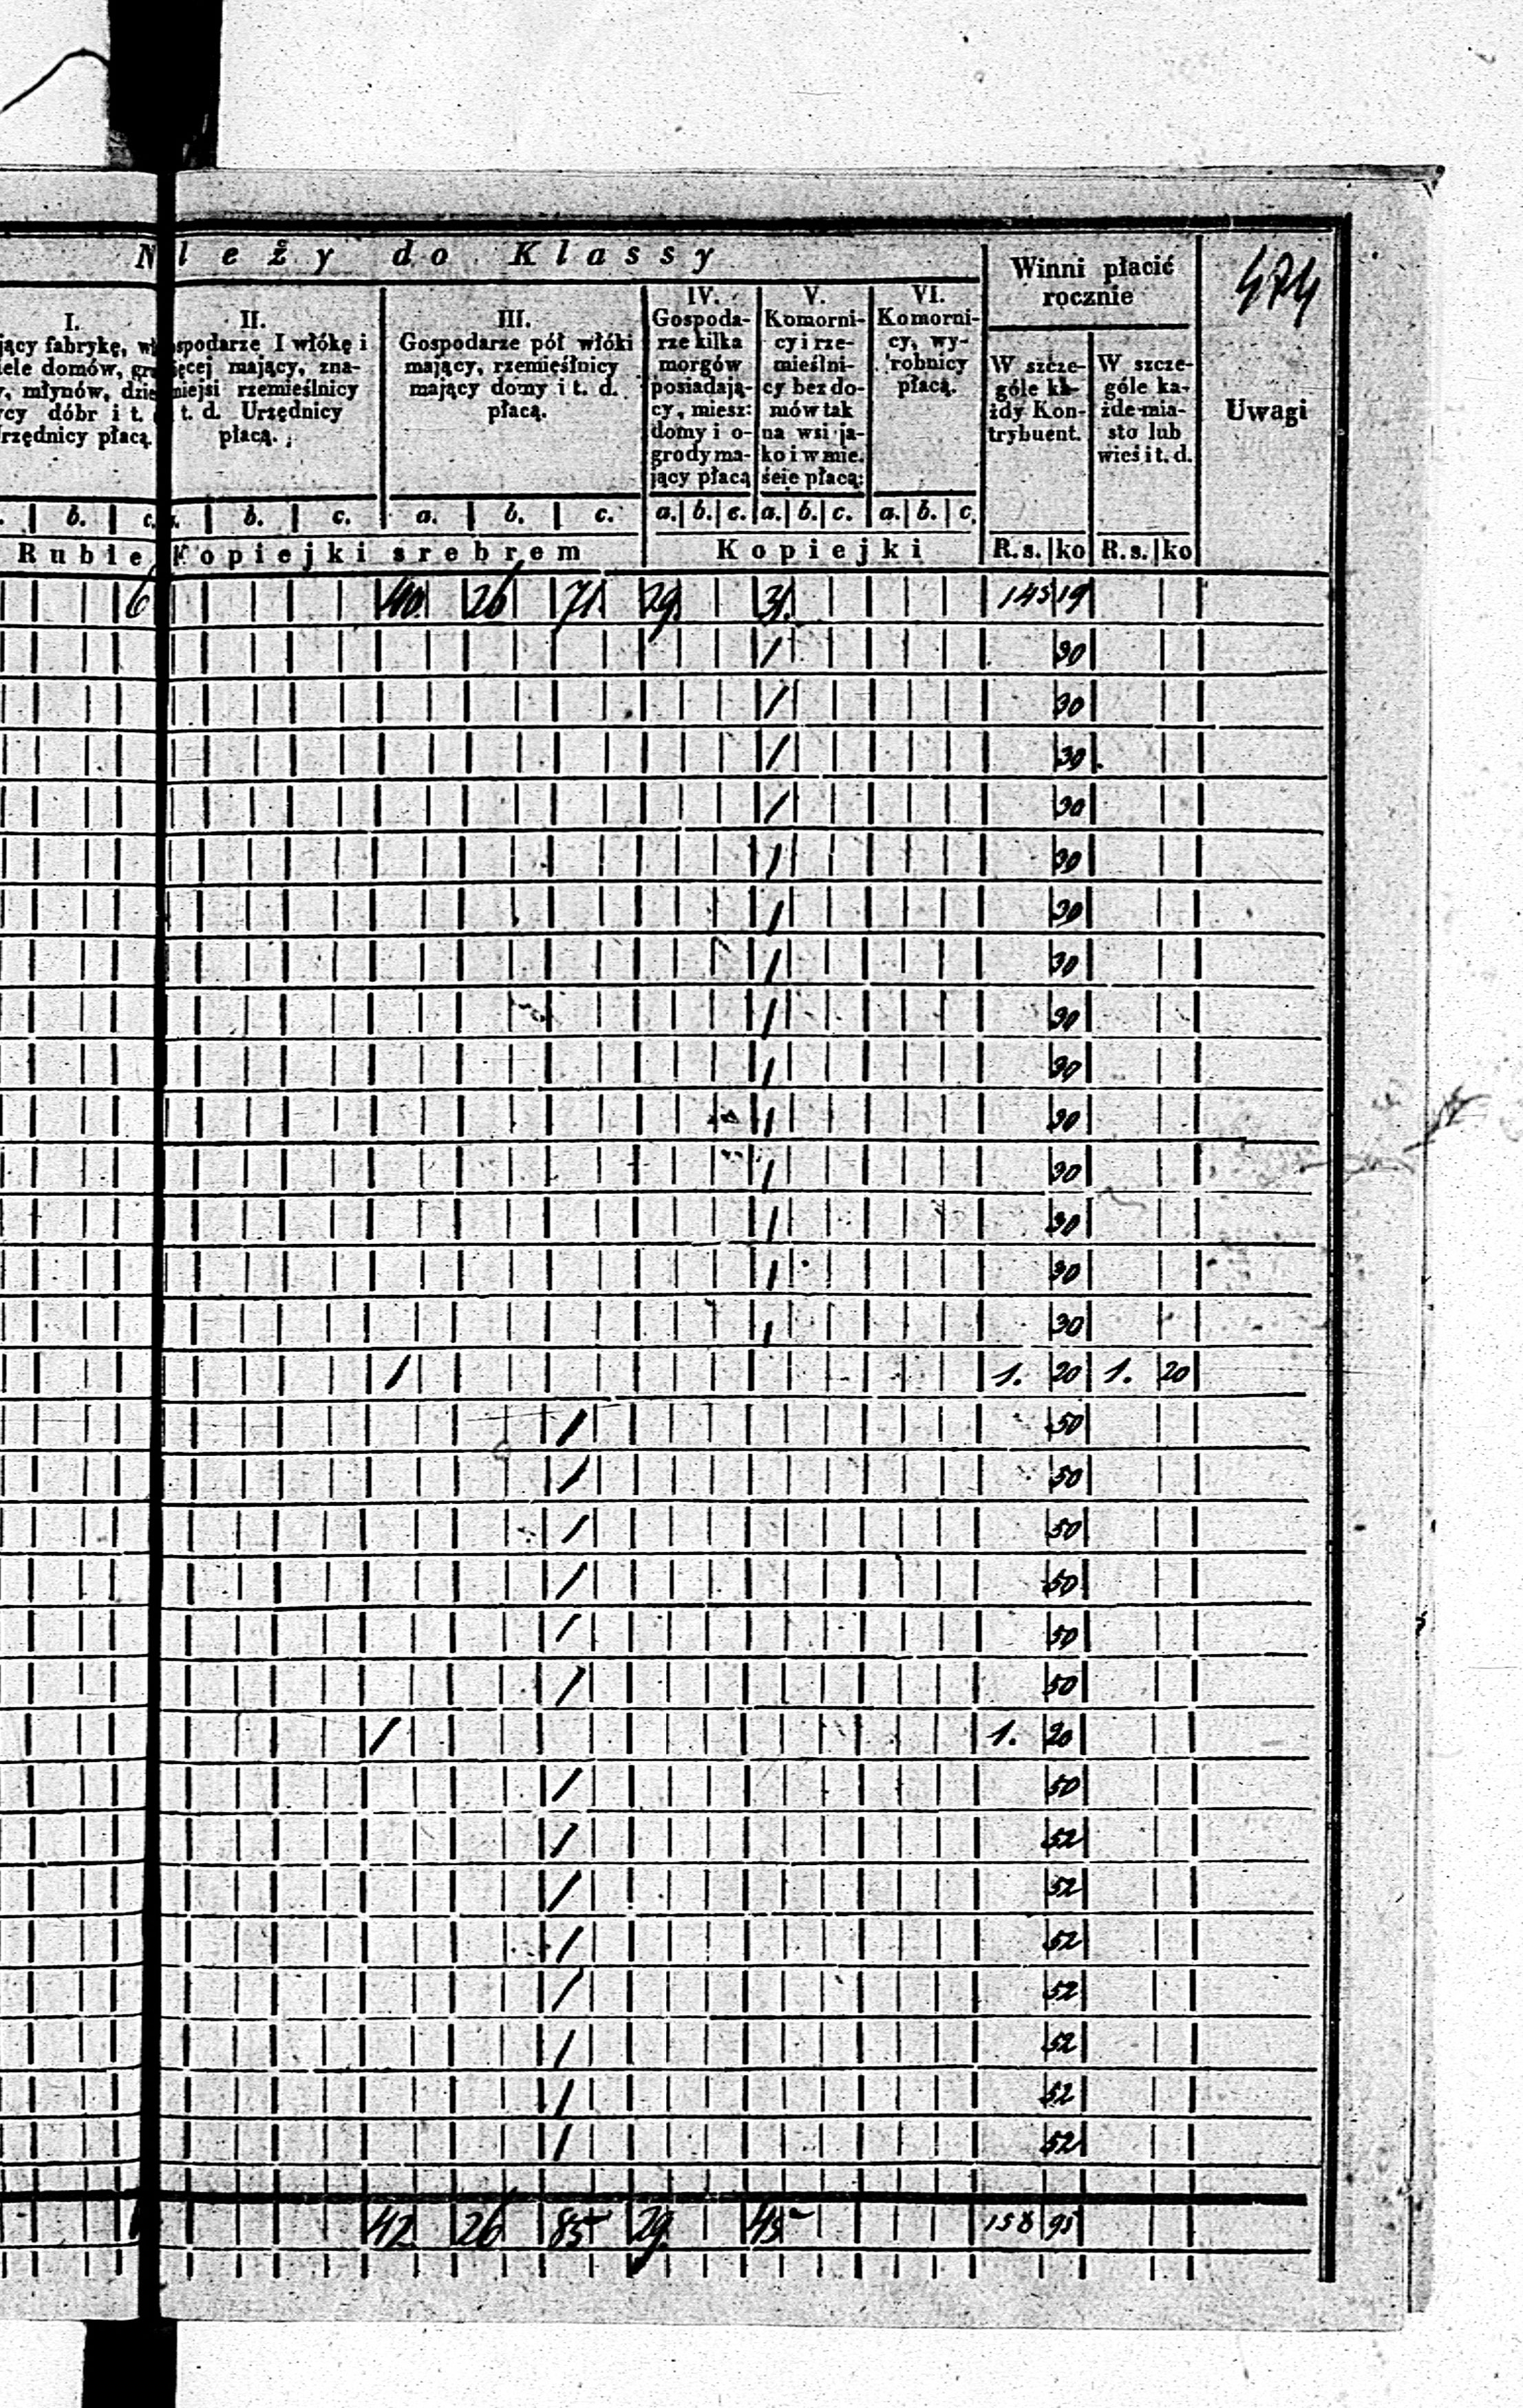 N leży do Klassy
Winni płacić
rocznie
474
Uwagi
I.
jący fabrykę, wi
iele domów, gru
, młynów, dzie
cy dóbr i t.
rzędnicy płacą.
II.
spodarze I włókę i
ięcej mający, zna-
miejsi rzemieślnicy
t. d. Urzędnicy
płacą.
III.
Gospodarze pół włóki
mający, rzemieślnicy
mający domy i t. d.
płacą.
IV.
Gospoda-
rze kilka
morgów
posiadają-
cy, miesz:
domy i o-
grody ma-
jący płacą
V.
Komorni-
cy i rze-
mieślni-
cy bez do-
mów tak
na wsi ja-
ko i w mie.
ście płacą:
VI.
Komorni-
cy, wy-
robnicy
płacą.
W szcze-
góle ka-
żdy Kon-
trybuent.
W szcze-
góle ka-
żde mia-
sto lub
wieś i t. d.
b. c. b. c. a. b. c. a. b. c. a. b. c. a. b. c.
Ruble Kopiejki srebrem Kopiejki R.s. ko R.s. ko
6 40. 26 71. 29. 31. 145 19
/ 30
/ 30
/ 30
/ 30
/ 30
/ 30
/ 30
/ 30
/ 30
/ 30
/ 30
/ 30
/ 30
/ 30
/ 1. 20 1. 20
/ 50
/ 50
/ 50
/ 50
/ 50
/ 50
/ 1. 20
/ 50
/ 52
/ 52
/ 52
/ 52
/ 52
/ 52
/ 52
42 26 85 29. 45 158 95